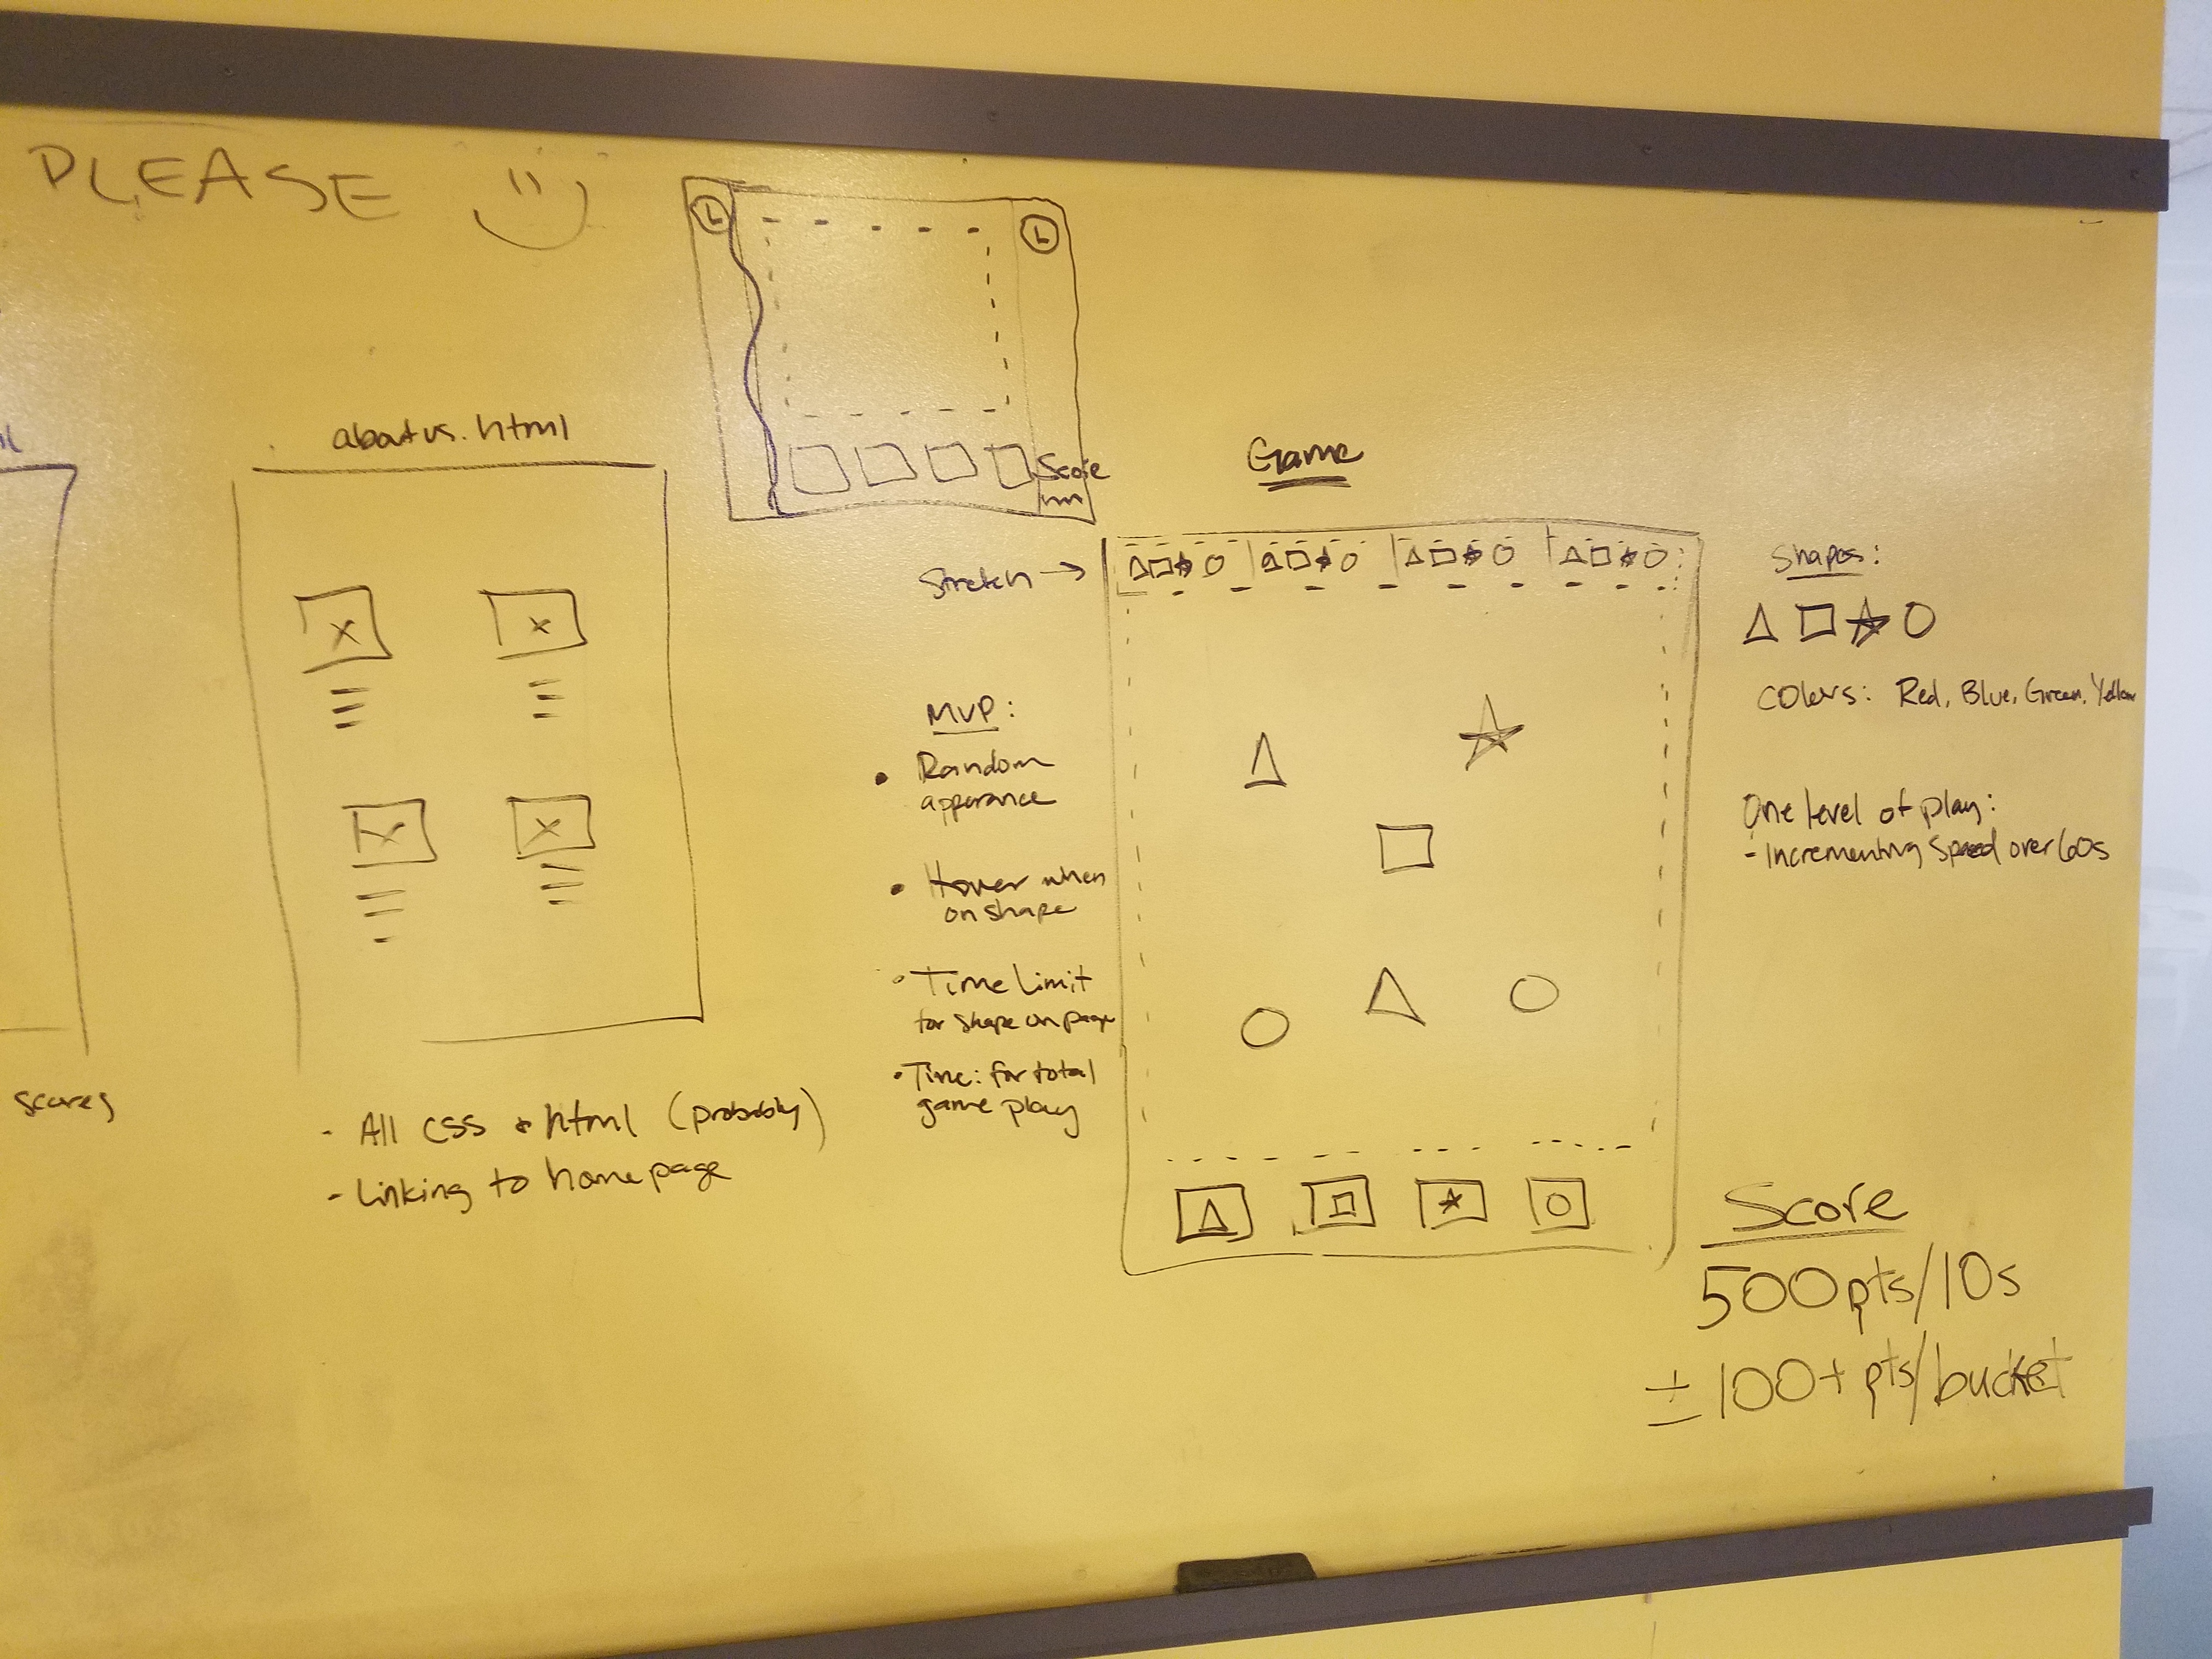 PLEASE
aboutus.html
- All CSS + html (probably)
- Linking to homepage
scores
Score
Game
Stretch →
MVP:
• Random
apperance
• Hover when
on shape
• Time Limit
for shape on page
• Time: for total
game play
Shapes:
Colors: Red, Blue, Green, Yellow
One level of play:
- Incrementing Speed over 60s
Score
500pts/10s
± 100+ pts/bucket